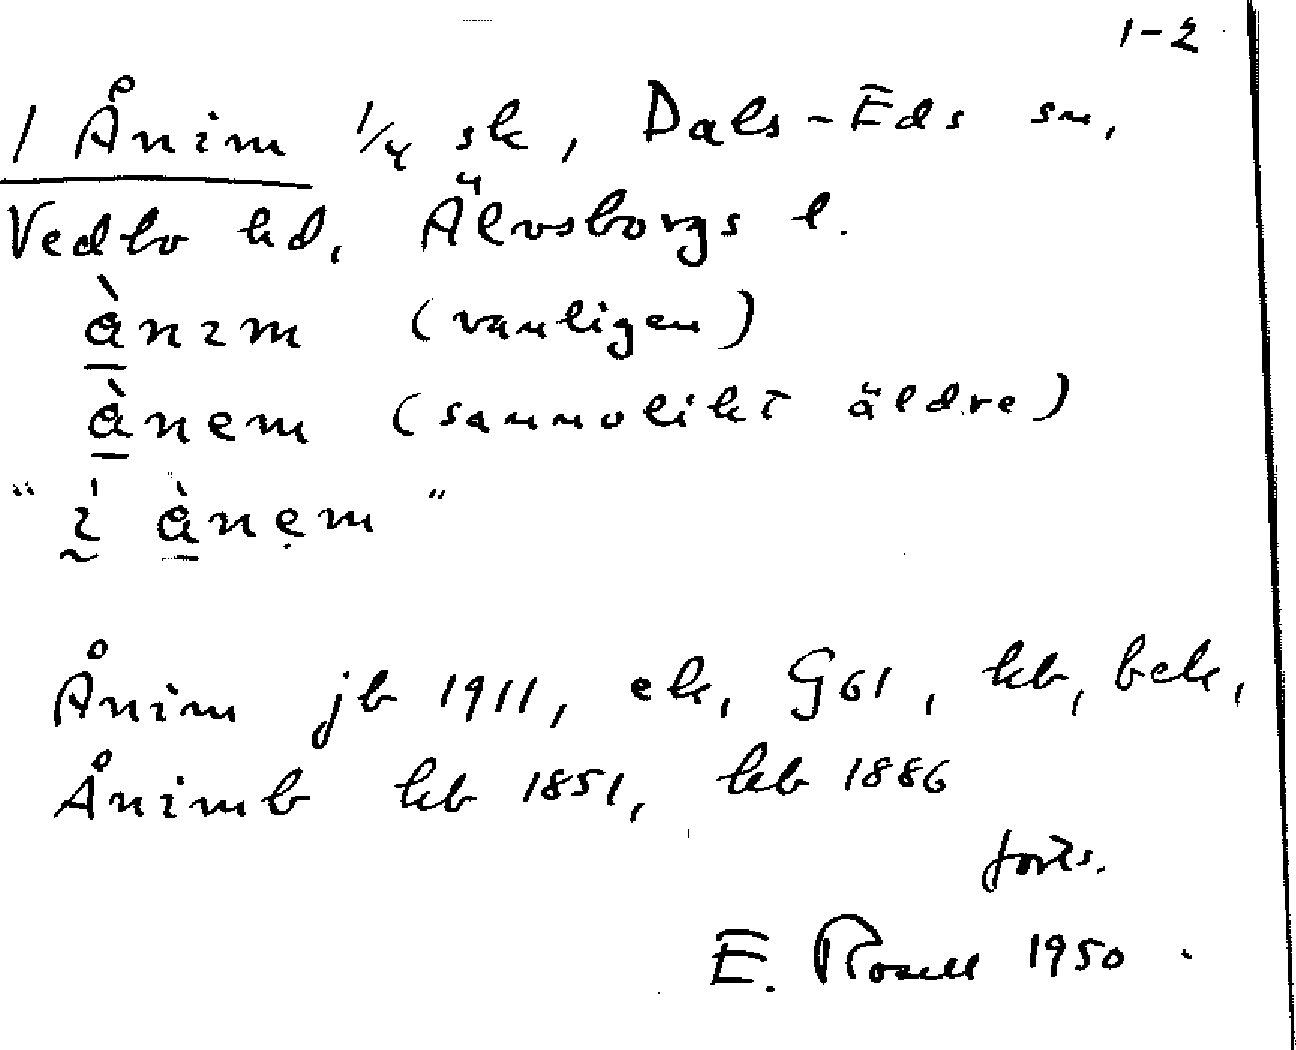 1-2
1 Ånim 1/4 sk, Dals-Eds sn,
Vedbo hd, Älvsborgs l.
ànım (vanligen)
ànem (sannolikt äldre)
"ı̍ ànẹm"
Ånim jb 1911, ek, G61, kb, bek,
Ånimb kb 1851, kb 1886
forts.
E. Rosell 1950.